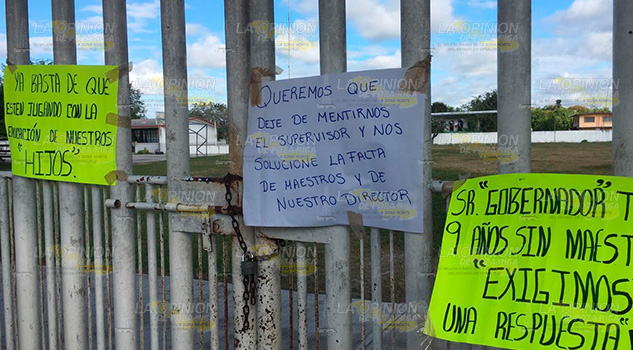 YA BASTA DE QUE
ESTEN JUGANDO CON LA
EDUCACIÓN DE NUESTROS
"HIJOS."
QUEREMOS QUE
DEJE DE MENTIRNOS
EL SUPERVISOR Y NOS
SOLUCIONE LA FALTA
DE MAESTROS Y DE
NUESTRO DIRECTOR
SR. "GOBERNADOR" T
9 AÑOS SIN MAEST
"EXIGIMOS
UNA RESPUESTA"